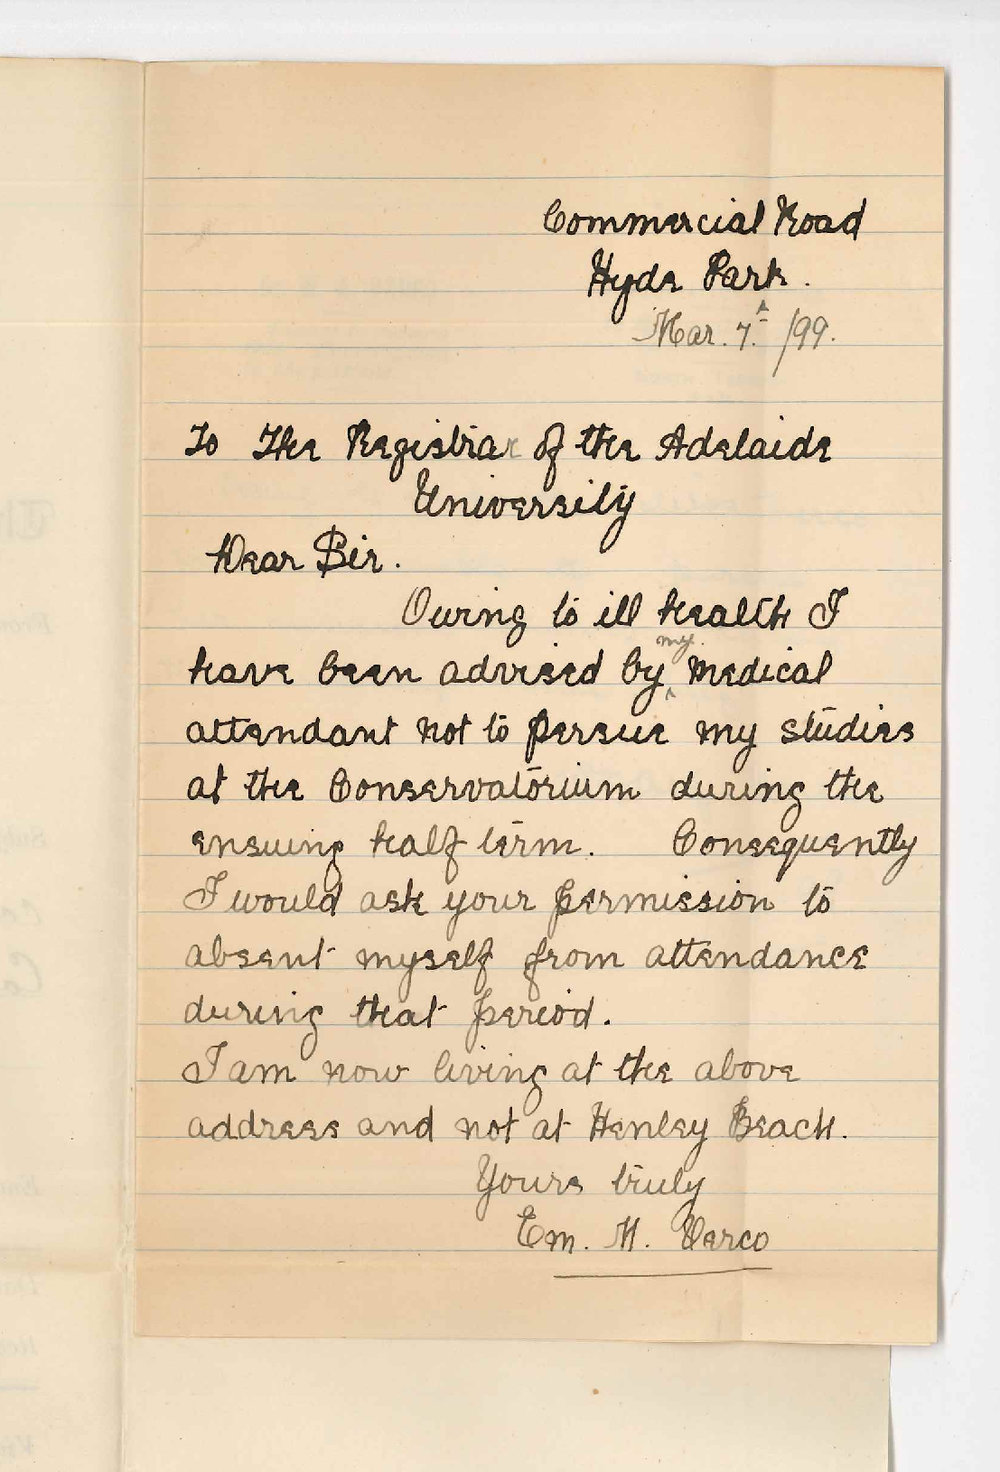 Commercial Road
Hyde Park.
Mar. 7th /99.
To The Registrar of the Adelaide
University
Dear Sir.
Owing to ill health I
have been advised by my Medical
attendant not to persue my studies
at the Conservatorium during the
ensuing half term. Consequently
I would ask your permission to
absent myself from attendance
during that period.
I am now living at the above
address and not at Henley Beach.
Yours truly
Em. M. Verco